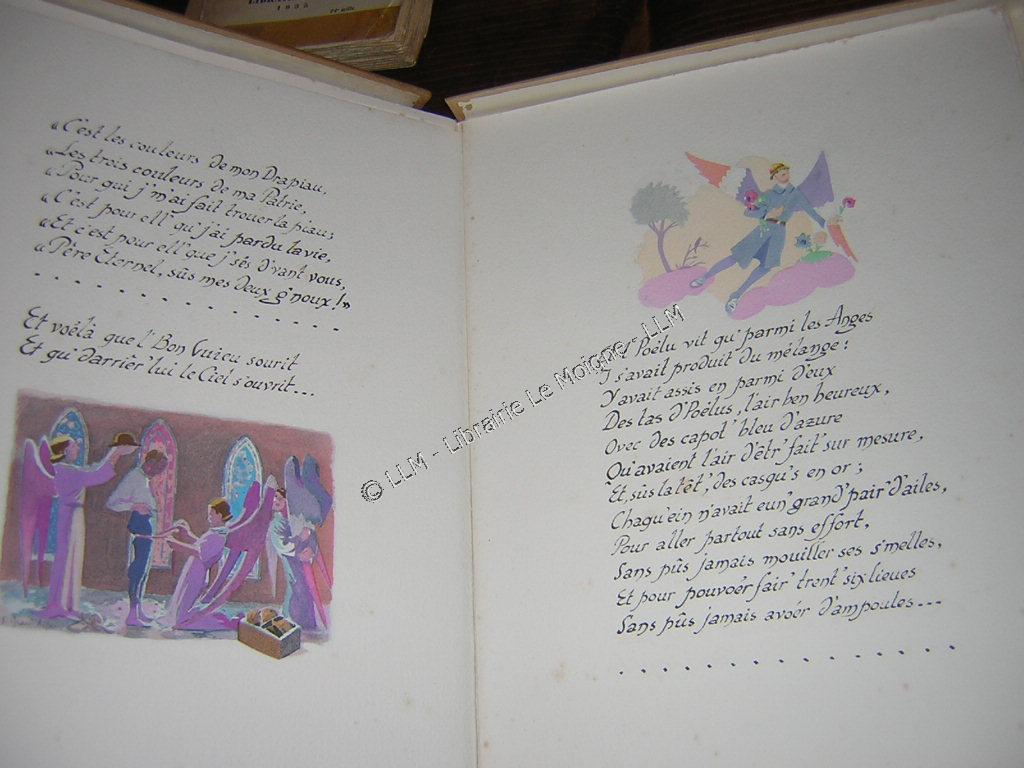 LIBRAI
1935
« C'est les couleurs de mon Drapiau,
« Les trois couleurs de ma Patrie,
« Pour qui j'm'ai fait trouer la piau;
« C'est pour ell' qu'j'ai pardu la vie,
« Et c'est pour ell' que j'sés d'vant vous,
« Père Eternel, sûs mes deux g'noux! »
. . . . . . . . . . . . . . .
Et voélà que l'Bon Guieu sourit
Et qu'darrièr' lui le Ciel s'ouvrit...
Poélu vit qu'parmi les Anges
I s'avait produit du mélange:
Y avait assis en parmi d'eux
Des tas d'Poélus, l'air ben heureux,
Ovec des capot' bleu d'azure
Qu'avaient l'air d'êtr' fait' sur mesure,
Et, sûs la têt', des casqu's en or;
Chaqu'ein n'avait eun' grand' pair' d'ailes,
Pour aller partout sans effort,
Sans pûs jamais mouiller ses s'melles,
Et pour pouvoér fair' trent' six lieues
Sans pûs jamais avoér d'ampoules...
. . . . . . . . . . . . . . .
© LLM - Librairie Le Moigne - LLM